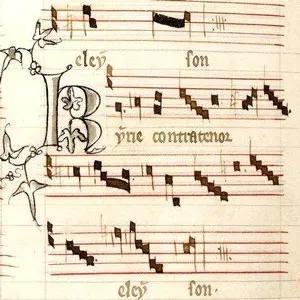 eleẏ son
Kẏrie contratenor
eleẏ son.